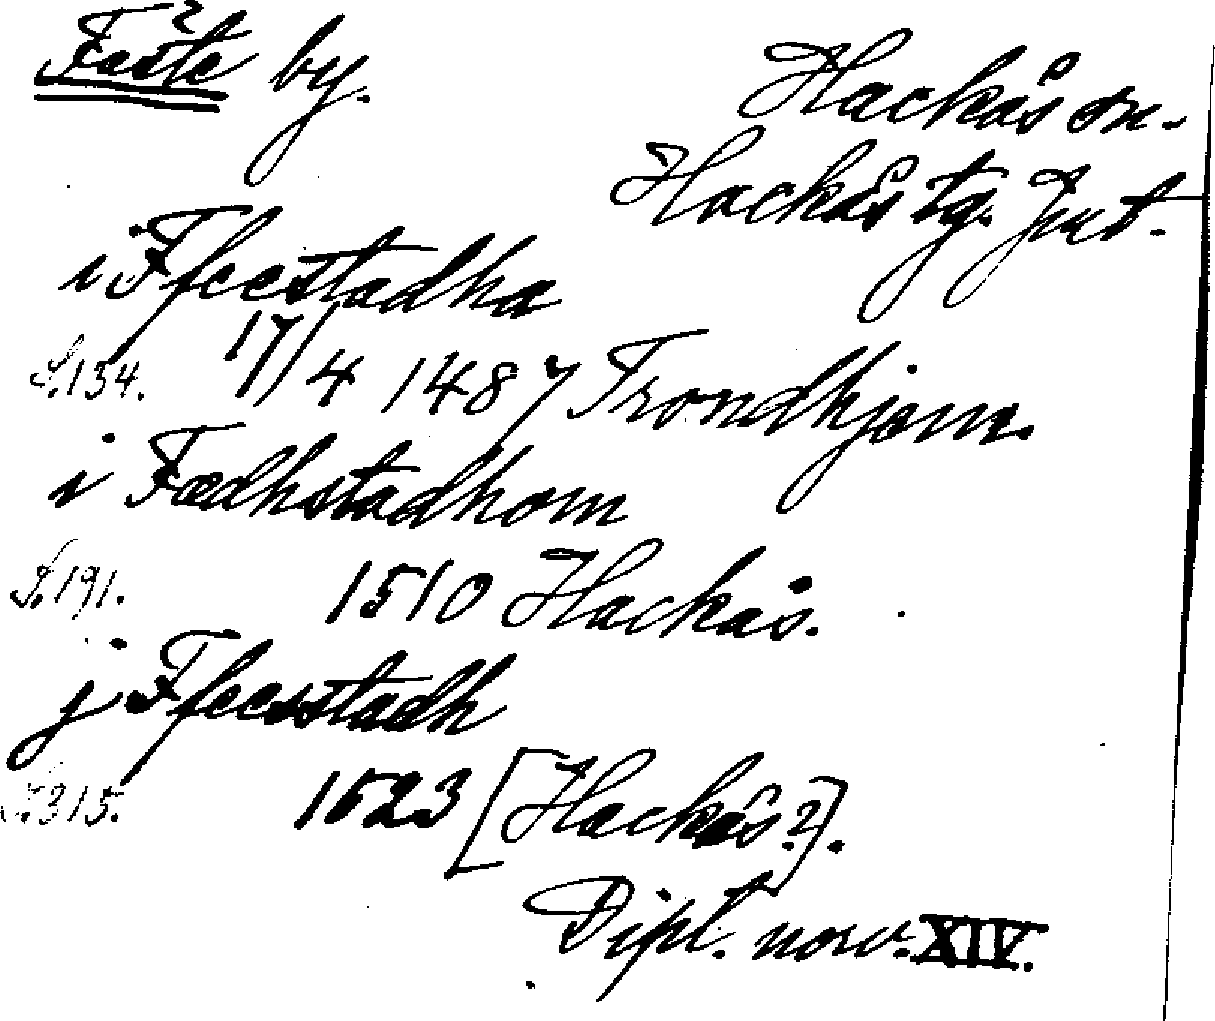 Fäste by.
Hackås sn.
Hackås tg. Jmt.
i Ffeestadha
S. 134. 17/4 1487 Trondhjem.
i Fædhstadhom
S. 191. 1510 Hackås.
j Ffeesstadh
S. 315. 1523 [Hackås?].
Dipl. norv. XIV.